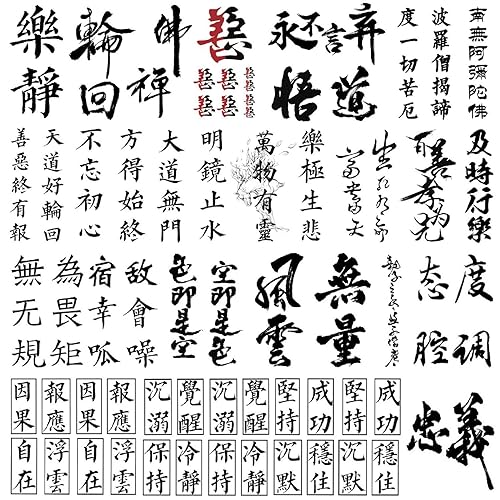 樂靜
輪回
佛
禪
永不言弃
悟道
度一切苦厄
波羅僧揭諦
南無阿彌陀佛
善惡終有報
天道好輪回
不忘初心
方得始終
大道無門
明鏡止水
萬物有靈
樂極生悲
及時行樂
無无規
為畏矩
宿幸呱
敌會噪
色即是空
空即是色
風雲
無量
态度
腔调
忠義
因果
報應
因果
報應
沉溺
覺醒
沉溺
覺醒
堅持
成功
堅持
成功
自在
浮雲
自在
浮雲
保持
冷靜
保持
冷靜
沉默
穩佳
沉默
穩佳